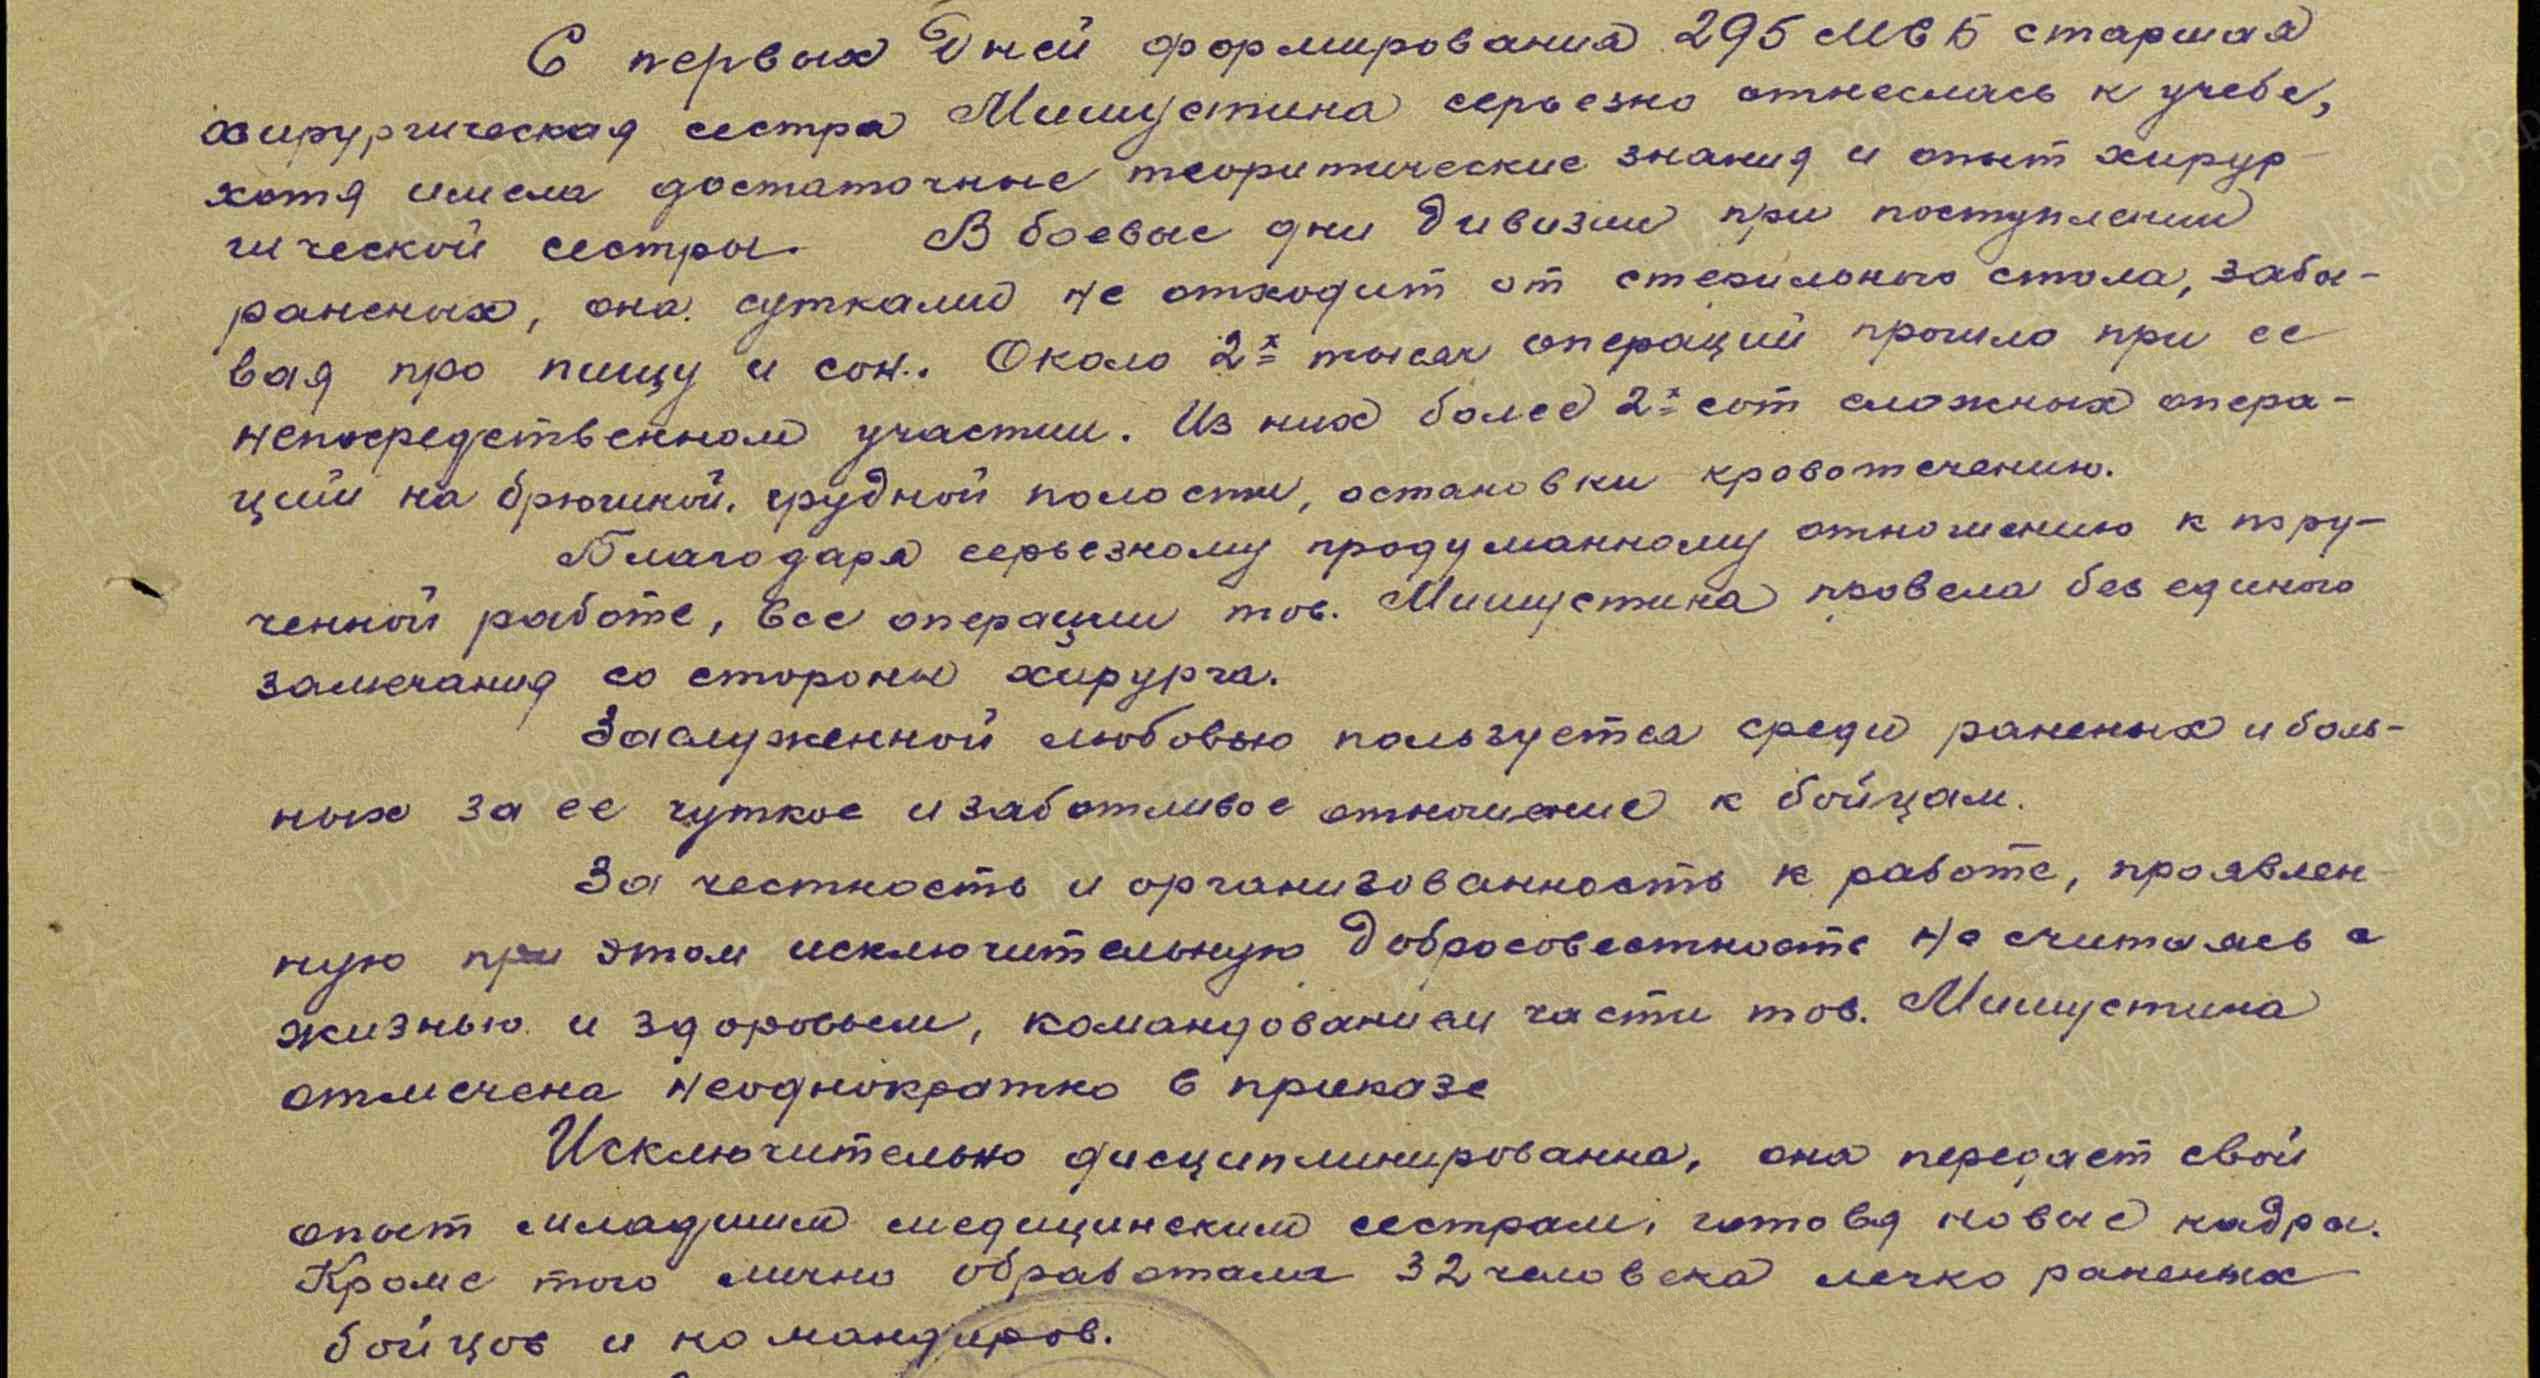 С первых дней формирования 295 МСБ старшая
хирургическая сестра Мишустина серьезно отнеслась к учебе,
хотя имела достаточные теоритические знания и опыт хирур-
гической сестры. В боевые дни дивизии при поступлении
раненых, она сутками не отходит от стерильного стола, забы-
вая про пищу и сон. Около 2х тысяч операций прошло при ее
непосредственном участии. Из них более 2х сот сложных опера-
ций на брюшной, грудной полости, остановки кровотечению.
Благодаря серьезному продуманному отношению к пору-
ченной работе, все операции тов. Мишустина провела без единого
замечания со стороны хирурга.
Заслуженной любовью пользуется среди раненых и боль-
ных за ее чуткое и заботливое отношение к бойцам.
За честность и организованность к работе, проявлен-
ную при этом исключительную добросовестность не считаясь с
жизнью и здоровьем, командованием части тов. Мишустина
отмечена неоднократно в приказе
Исключительно дисциплинированна, она передает свой
опыт младшим медицинским сестрам, готовя новые кадры.
Кроме того лично обработала 32 человека легко раненых
бойцов и командиров.